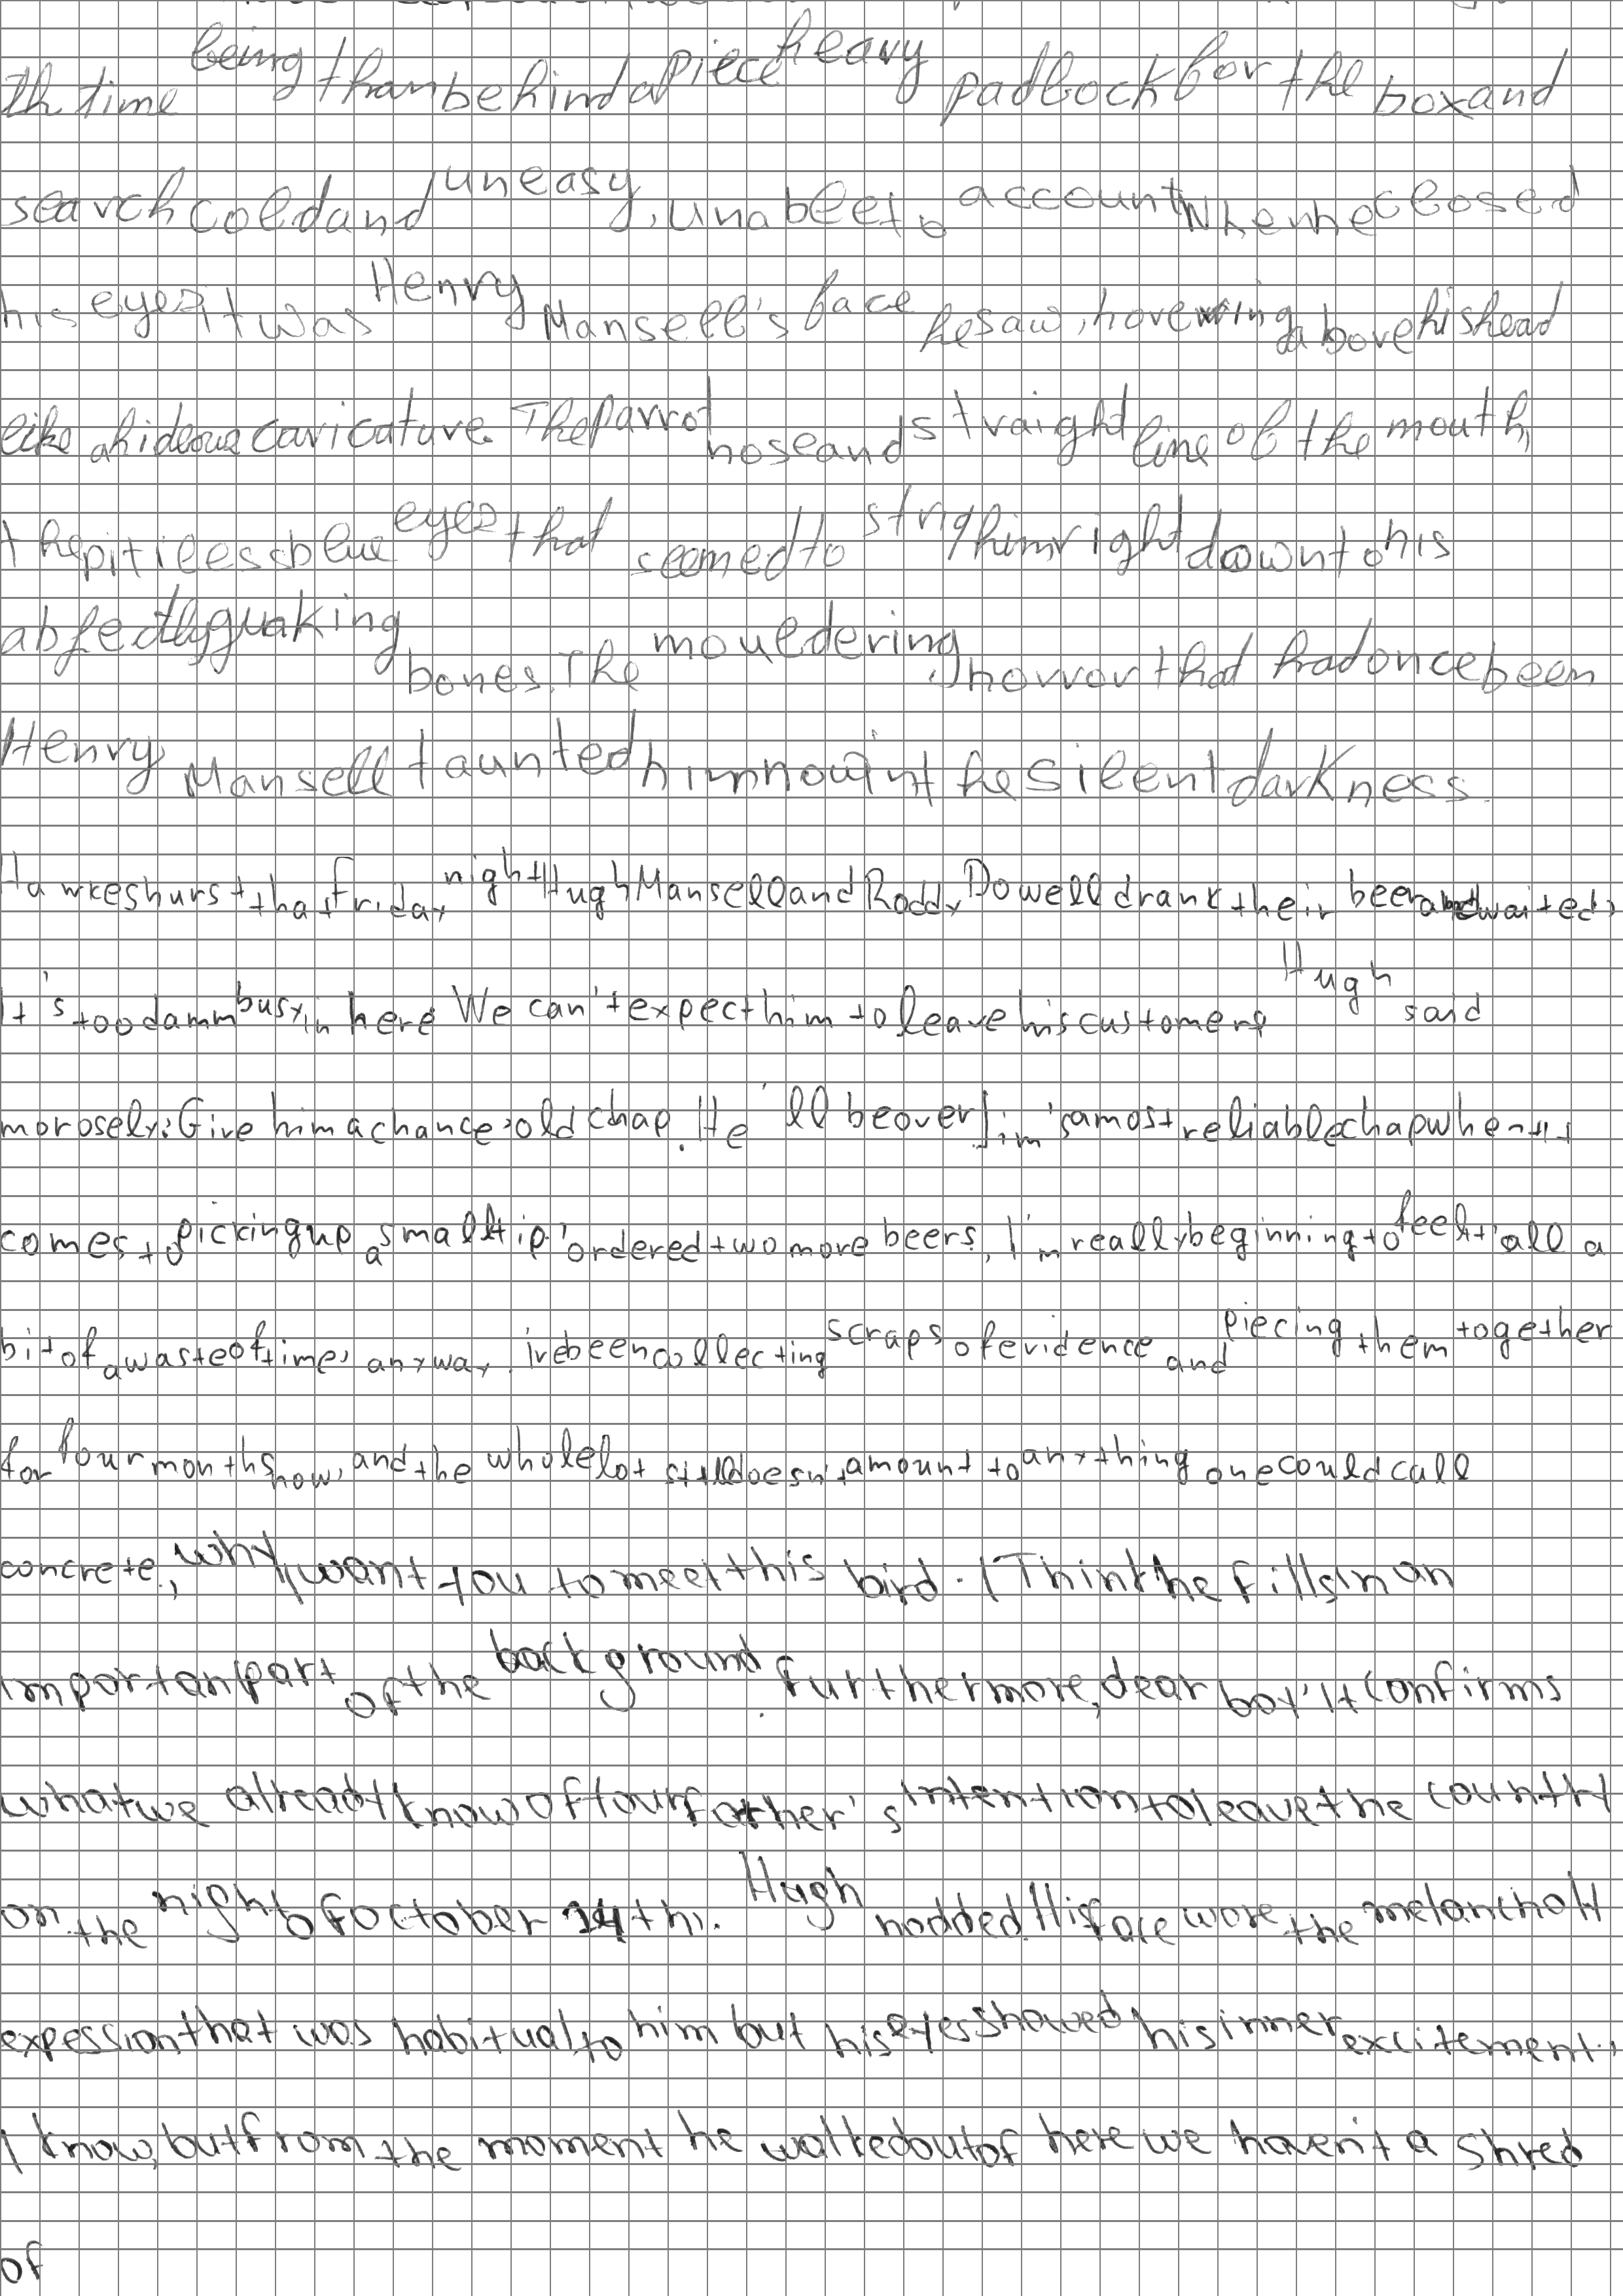 th time being than behind a piece heavy padlock for the box and
search cold and uneasy, unable to account When he closed
his eyes it was Henry Mansell's face he saw, hovering above his head
like a hideous caricature. The parrot nose and straight line of the mouth,
the pitiless blue eyes that seemed to strip him right down to his
abjectly quaking bones. The mouldering, horror that had once been
Henry Mansell taunted him now in the silent darkness.
Hawkeshurst that friday night Hugh Mansell and Roddy Dowell drank their beer and waited,
It's too damm busy in here We can't expect him to leave his customers Hugh said
morosely: Give him a chance, old chap. He'll be over Jim's a most reliable chap when it
comes to picking up a small tip 'ordered two more beers, I'm really beginning to feel t'all a
bit of a waste of time, anyway. i've been collecting scraps of evidence and piecing them together
for four months now, and the whole lot still doesn't amount to anything one could call
concrete, why, I want you to meet this bird. I Think he fills in an
important part of the background. furthermore, dear boy, 'it confirms
what we already know of your father's intention to leave the country
on the night of october 24th. Hugh nodded His face wore the melancholy
expession that was habitual to him but his eyes showed his inner excitement,
I know, but from the moment he walked out of here we haven't a shred
of